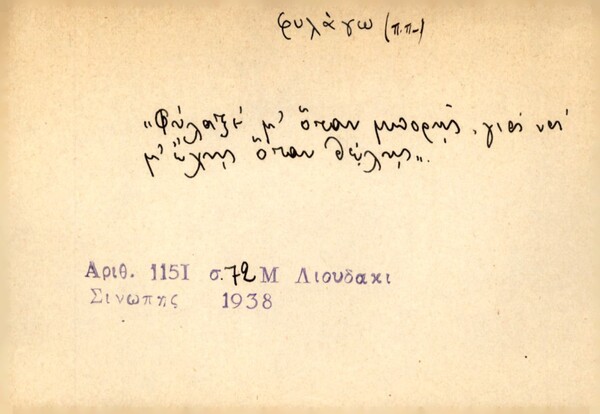 φυλάγω (π.π-)
"Φύλαξέ μ' ὅταν μπορῇς, γιὰ νά
μ' ἔχῃς ὅταν θέλῃς".
Αριθ. 1151 σ. 72 Μ Λιουδακι
Σινωπης 1938